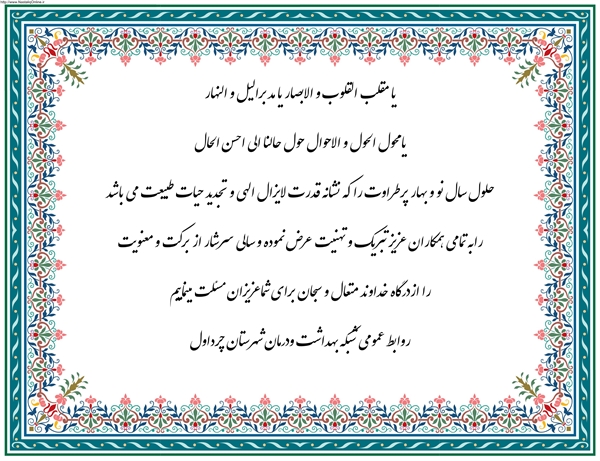 http://www.NastaliqOnline.ir
یا مقلب القلوب و الابصار یا مدبرالیل و النهار
یامحول الحول و الاحوال حول حالنا الی احسن الحال
حلول سال نو و بهار پرطراوت را که نشانه قدرت لایزال الهی و تجدید حیات طبیعت می باشد
رابه تمامی همکاران عزیز تبریک و تهنیت عرض نموده و سالی سرشار از برکت و معنویت
را ازدرگاه خداوند متعال و سبحان برای شما عزیزان مسئلت مینماییم
روابط عمومی شبکه بهداشت ودرمان شهرستان چرداول